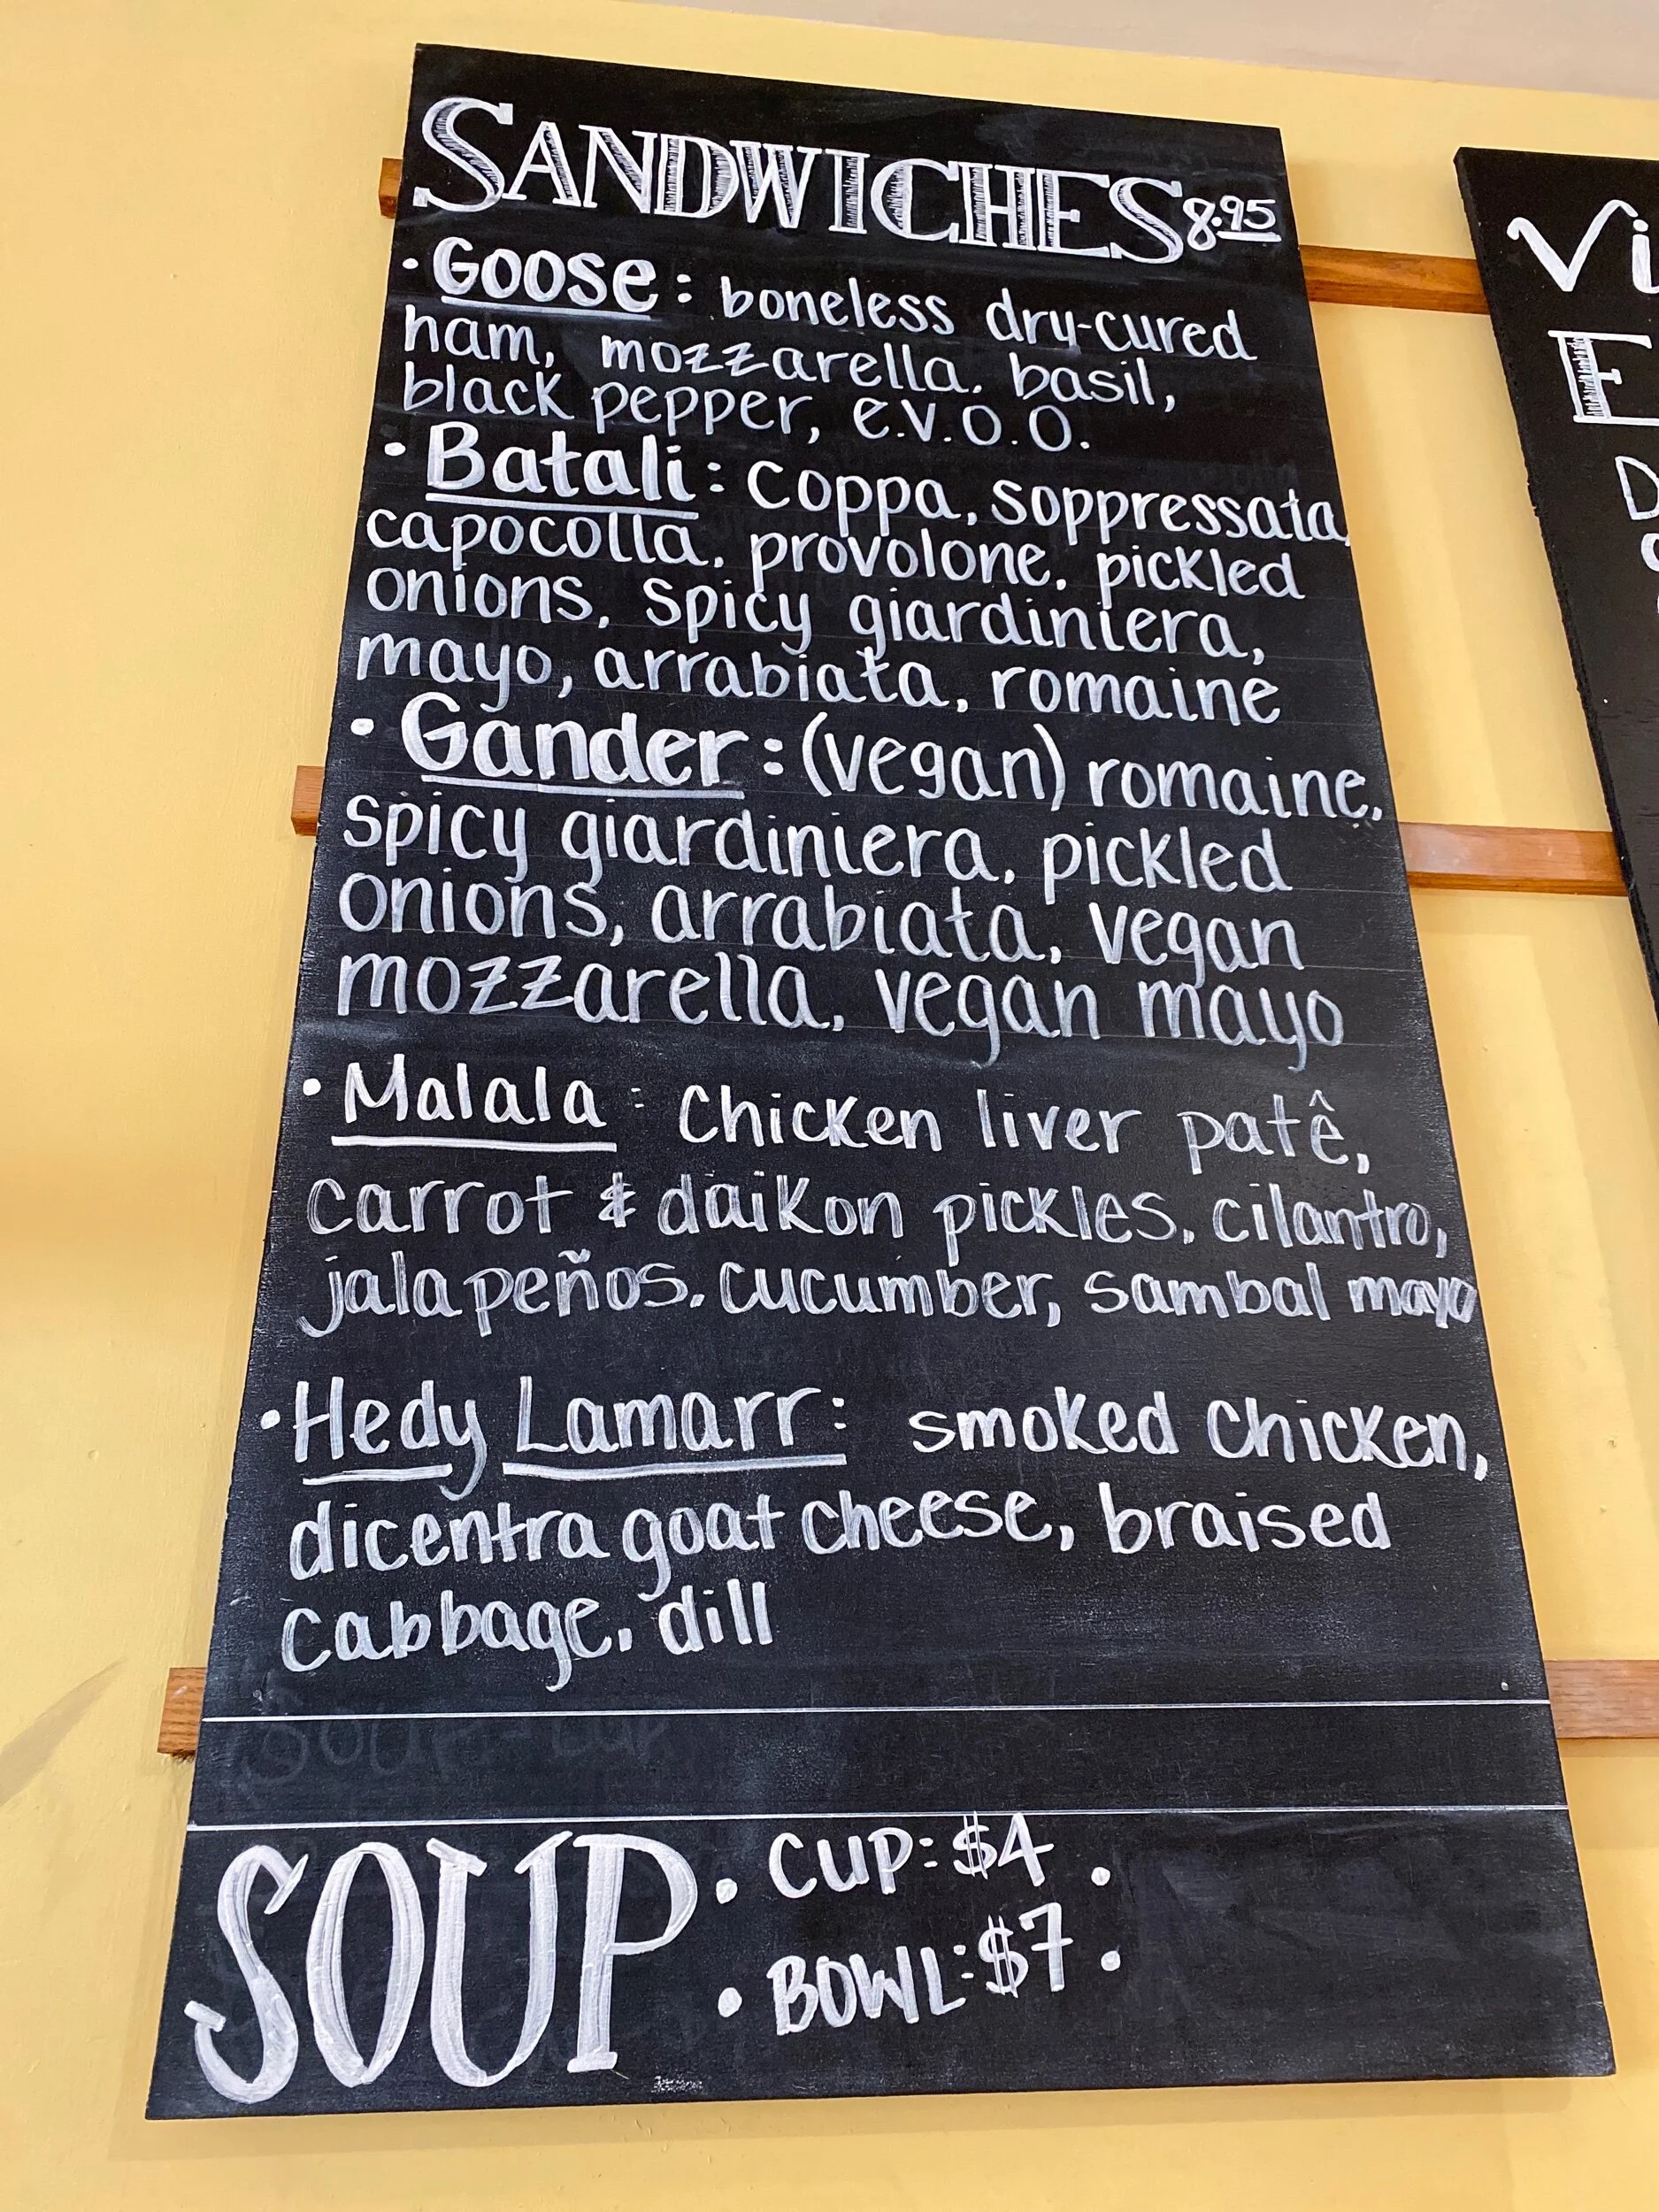 SANDWICHES 8.95
• Goose: boneless dry-cured
ham, mozzarella, basil,
black pepper, e.v.o.o.
• Batali: Coppa, soppressata,
capocolla, provolone, pickled
onions, spicy giardiniera,
mayo, arrabiata, romaine
• Gander: (vegan) romaine,
spicy giardiniera, pickled
onions, arrabiata, vegan
mozzarella, vegan mayo
• Malala: Chicken liver patê,
carrot & daikon pickles, cilantro,
jalapeños, cucumber, sambal mayo
• Hedy Lamarr: smoked chicken,
dicentra goat cheese, braised
cabbage, dill
SOUP • CUP: $4 •
• BOWL: $7 •